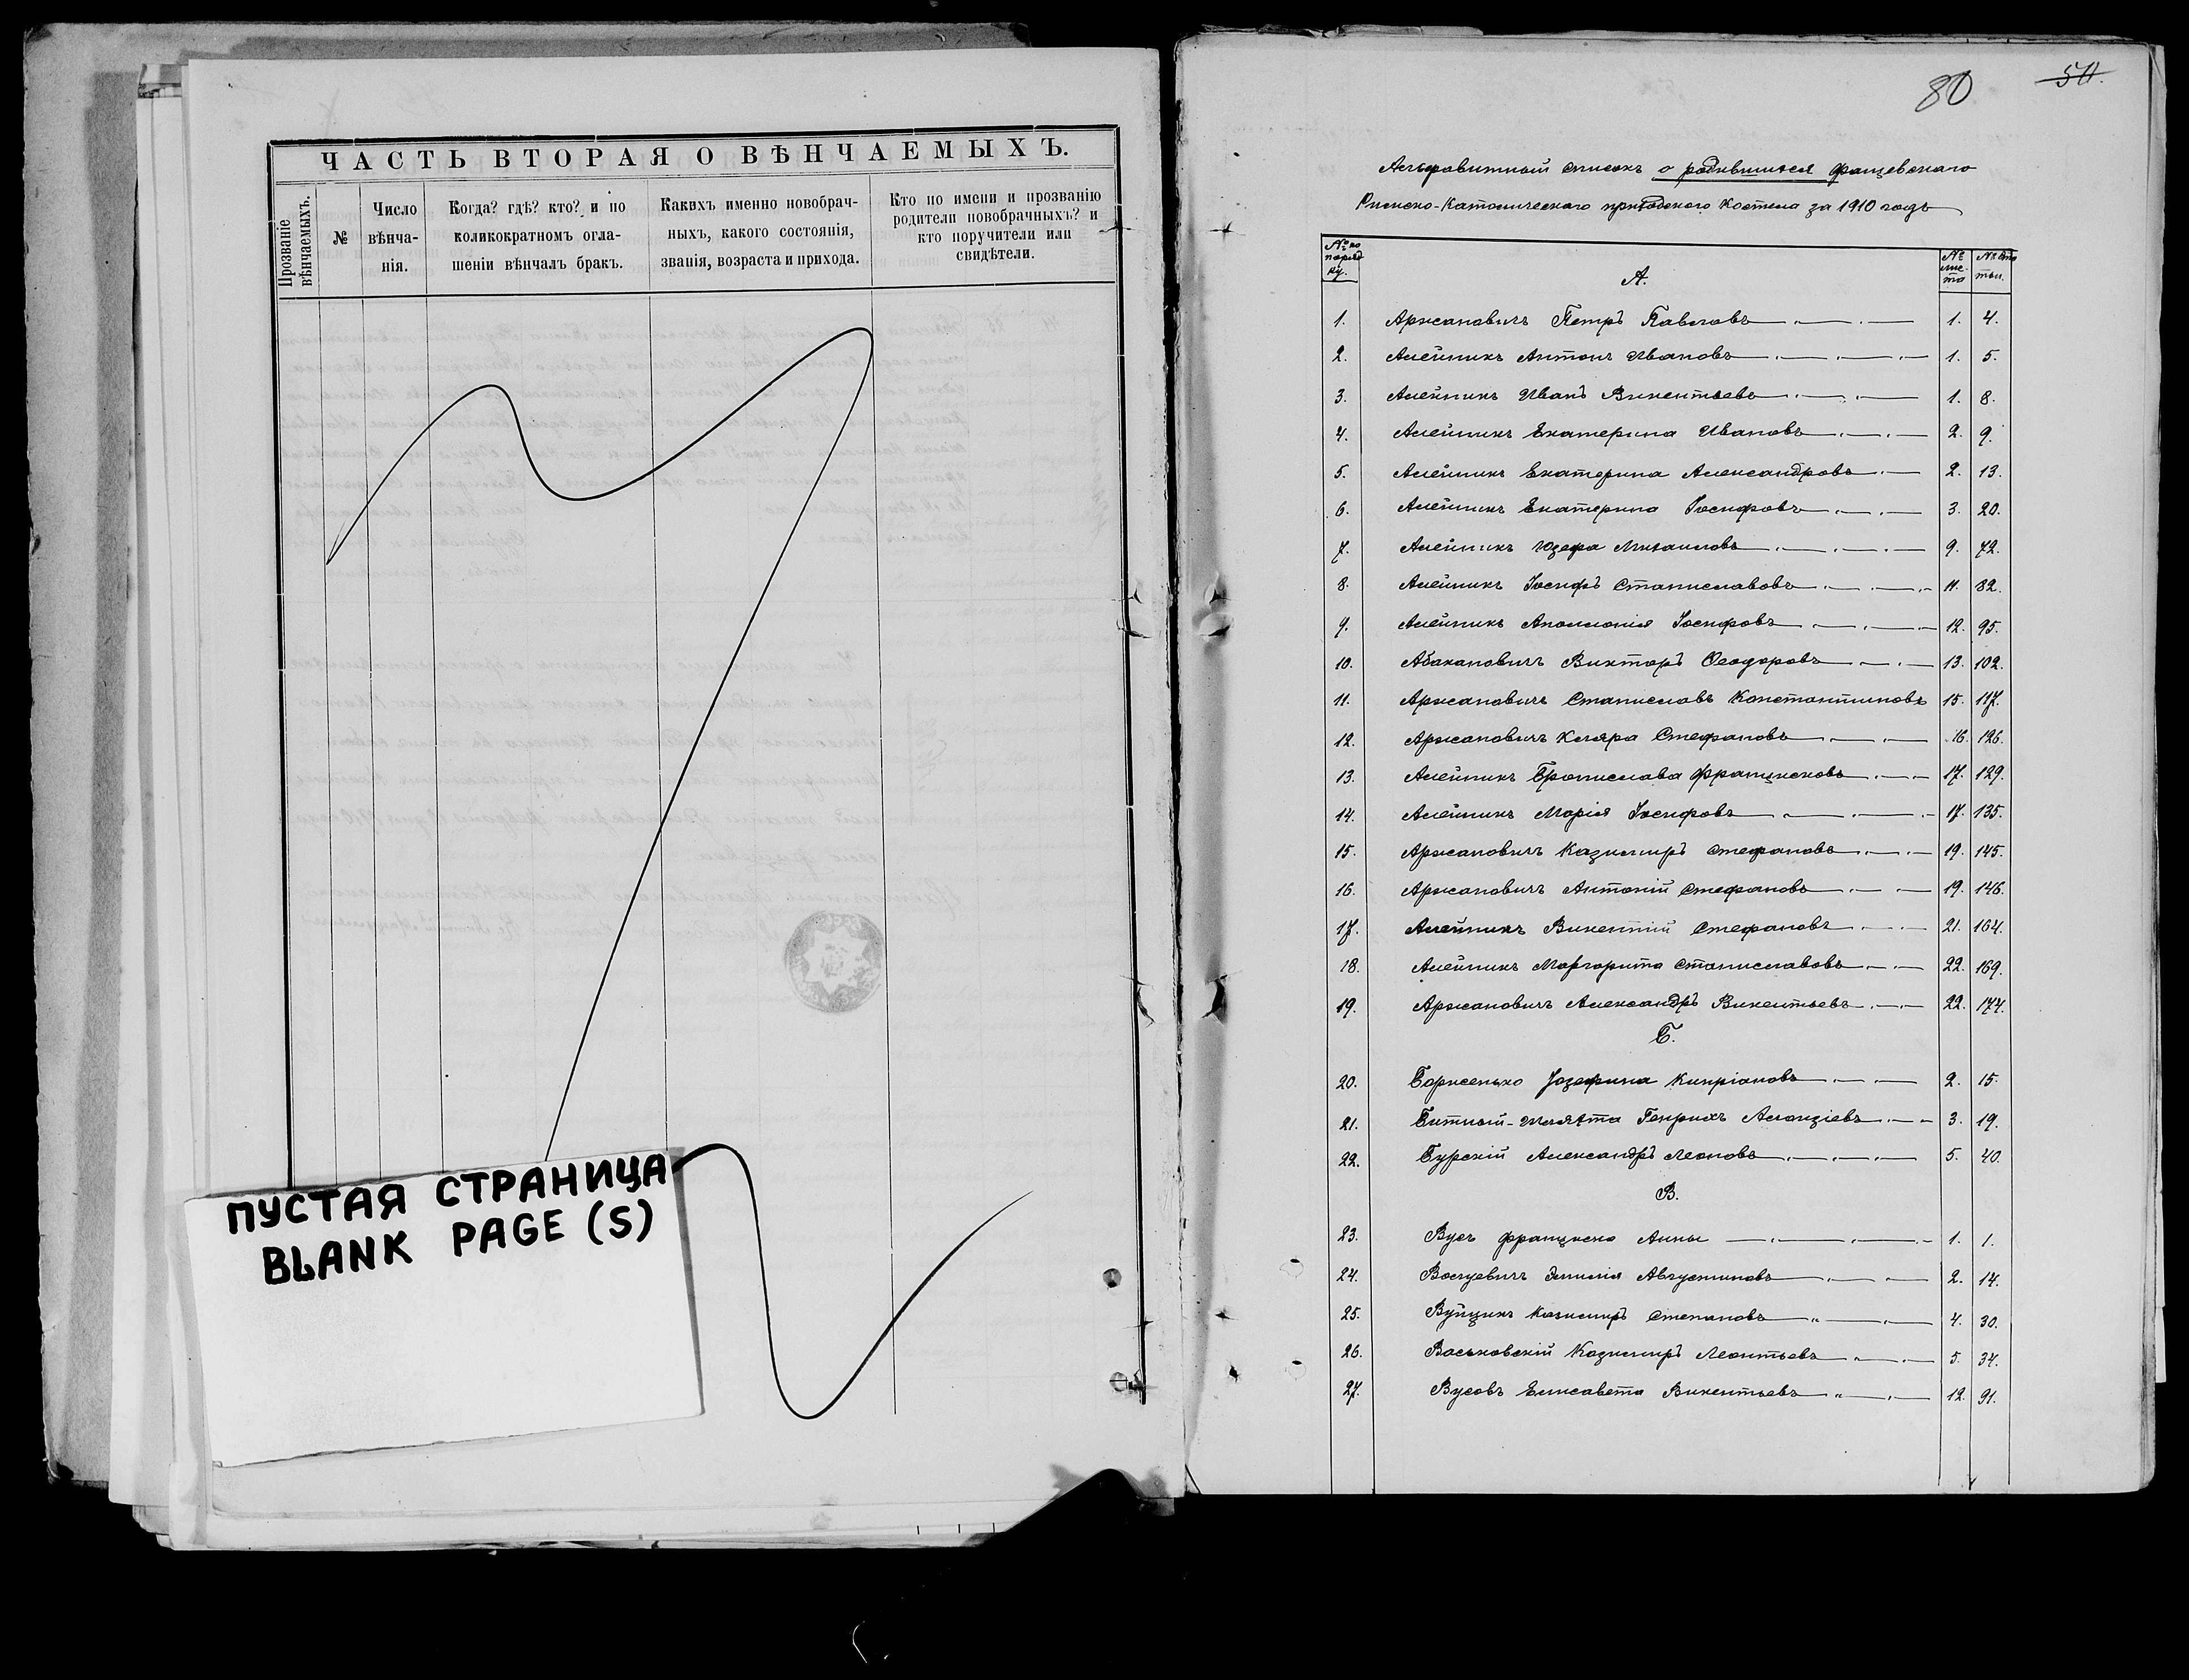 ЧАСТЬ ВТОРАЯ О ВѢНЧАЕМЫХЪ.
Прозваніе вѣнчаемыхъ.
№
Число
вѣнча-
нія.
Когда? гдѣ? кто? и по
коликократномъ огла-
шеніи вѣнчалъ бракъ.
Какихъ именно новобрач-
ныхъ, какого состоянія,
званія, возраста и прихода.
Кто по имени и прозванію
родители новобрачныхъ? и
кто поручители или
свидѣтели.
ПУСТАЯ СТРАНИЦА
BLANK PAGE (S)
80
Алфавитный списокъ о родившихся Фащевскаго
Римско-Католическаго приходскаго Костела за 1910 годъ
№ по порядку.
№ листа
№ статьи.
А.
1. Аржановичъ Петръ Павловъ 1. 4.
2. Алейникъ Антонъ Ивановъ 1. 5.
3. Алейникъ Иванъ Викентьевъ 1. 8.
4. Алейникъ Екатерина Ивановъ 2. 9.
5. Алейникъ Екатерина Александровъ 2. 13.
6. Алейникъ Екатерина Іосифовъ 3. 20.
7. Алейникъ Юзефа Михаиловъ 9. 72.
8. Алейникъ Іосифъ Станиславовъ 11. 82.
9. Алейникъ Аполлонія Іосифовъ 12. 95.
10. Абакановичъ Викторъ Ѳеодоровъ 13. 102.
11. Аржановичъ Станиславъ Константиновъ 15. 117.
12. Аржановичъ Кляра Стефановъ 16. 126.
13. Алейникъ Бронислава Францисковъ 17. 129.
14. Алейникъ Марія Іосифовъ 17. 135.
15. Аржановичъ Казимиръ Стефановъ 19. 145.
16. Аржановичъ Антоній Стефановъ 19. 146.
17. Алейникъ Викентій Стефановъ 21. 164.
18. Алейникъ Маргарита Станиславовъ 22. 169.
19. Аржановичъ Александръ Викентьевъ 22. 174.
Б.
20. Борисенко Іозефина Кипріановъ 2. 15.
21. Битный-Шляхта Генрихъ Алоизіевъ 3. 19.
22. Бурскій Александръ Леоновъ 5. 40.
В.
23. Вусъ Франциско Анны 1. 1.
24. Эмилія Августиновъ 2. 14.
25. Вуйцикъ Казимиръ Степановъ 4. 30.
26. Васьковскій Казимиръ Леонтьевъ 5. 34.
27. Вусовъ Елисавета Викентьевъ 12. 91.